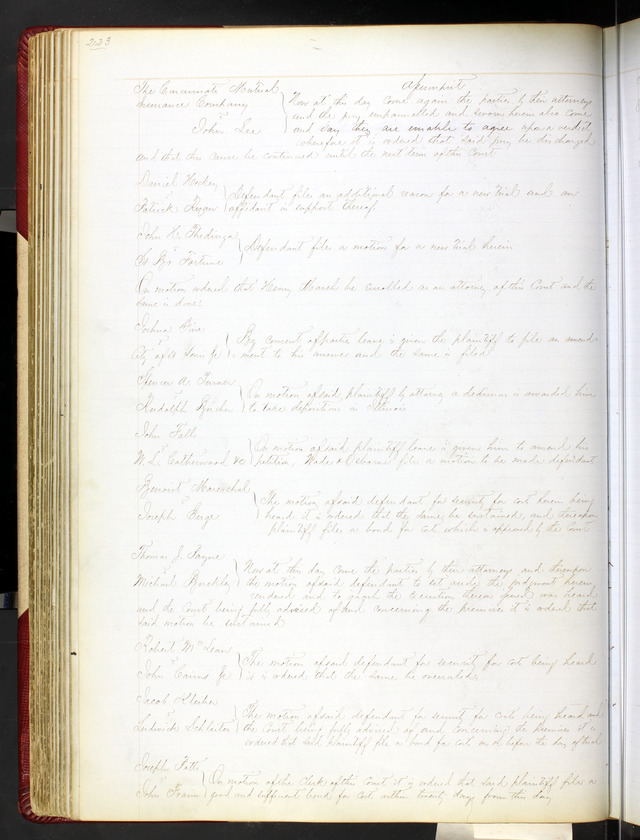 223
The Cincinnati Mutual Assumpsit
Insurance Company Now at this day come again the parties by their attorneys
vs and the jury empannelled and sworn herein also come
John Lee and say they are unable to agree upon a verdict
wherefore it is ordered that said jury be discharged
and that this cause be continued until the next term of this Court
Daniel
vs Defendant files an additional reason for a new trial and an
Patrick Ryan affidavit in support thereof
John H. Thedinga
vs Defendant files a motion for a new trial herein
On motion ordered that Henry March be enrolled as an attorney of this Court and the
same is done.
Joshua
vs By consent of parties leave is given the plaintiff to file an amend-
ment to his answer and the same is filed
vs On motion of said plaintiff by attorney a dedimus is awarded him
Rudolph to take depositions in Illinois
John Fall
vs On motion of said plaintiff leave is given him to amend his
W. L. Catherwood &c petition, Wade & Osborne file a motion to be made defendant
Benoist Mareschal
vs The motion of said defendant for security for cost herein being
Joseph heard it is ordered that the same be sustained, and thereupon
plaintiff files a bond for costs which is approved by the Court
Thomas J. Payne
vs Now at this day come the parties by their attorneys and thereupon
Michael Buckley the motion of said defendant to set aside the judgment herein
rendered and to quash the execution thereon issued was heard
and the Court being fully advised of and concerning the premises it is ordered that
said motion be sustained
Robert McLean
vs The motion of said defendant for security for cost being heard
John Cairns Jr it is ordered that the same be overruled
Jacob
vs The motion of said defendant for security for costs being heard and
Ludwick the Court being fully advised of and concerning the premises it is
ordered that said plaintiff file a bond for cost on or before the day of trial
Joseph
vs On motion of the Clerk of this Court it is ordered that said plaintiff file a
John good and sufficient bond for cost within twenty days from this day